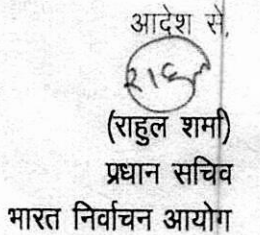 आदेश से,
(राहुल शर्मा)
प्रधान सचिव
भारत निर्वाचन आयोग